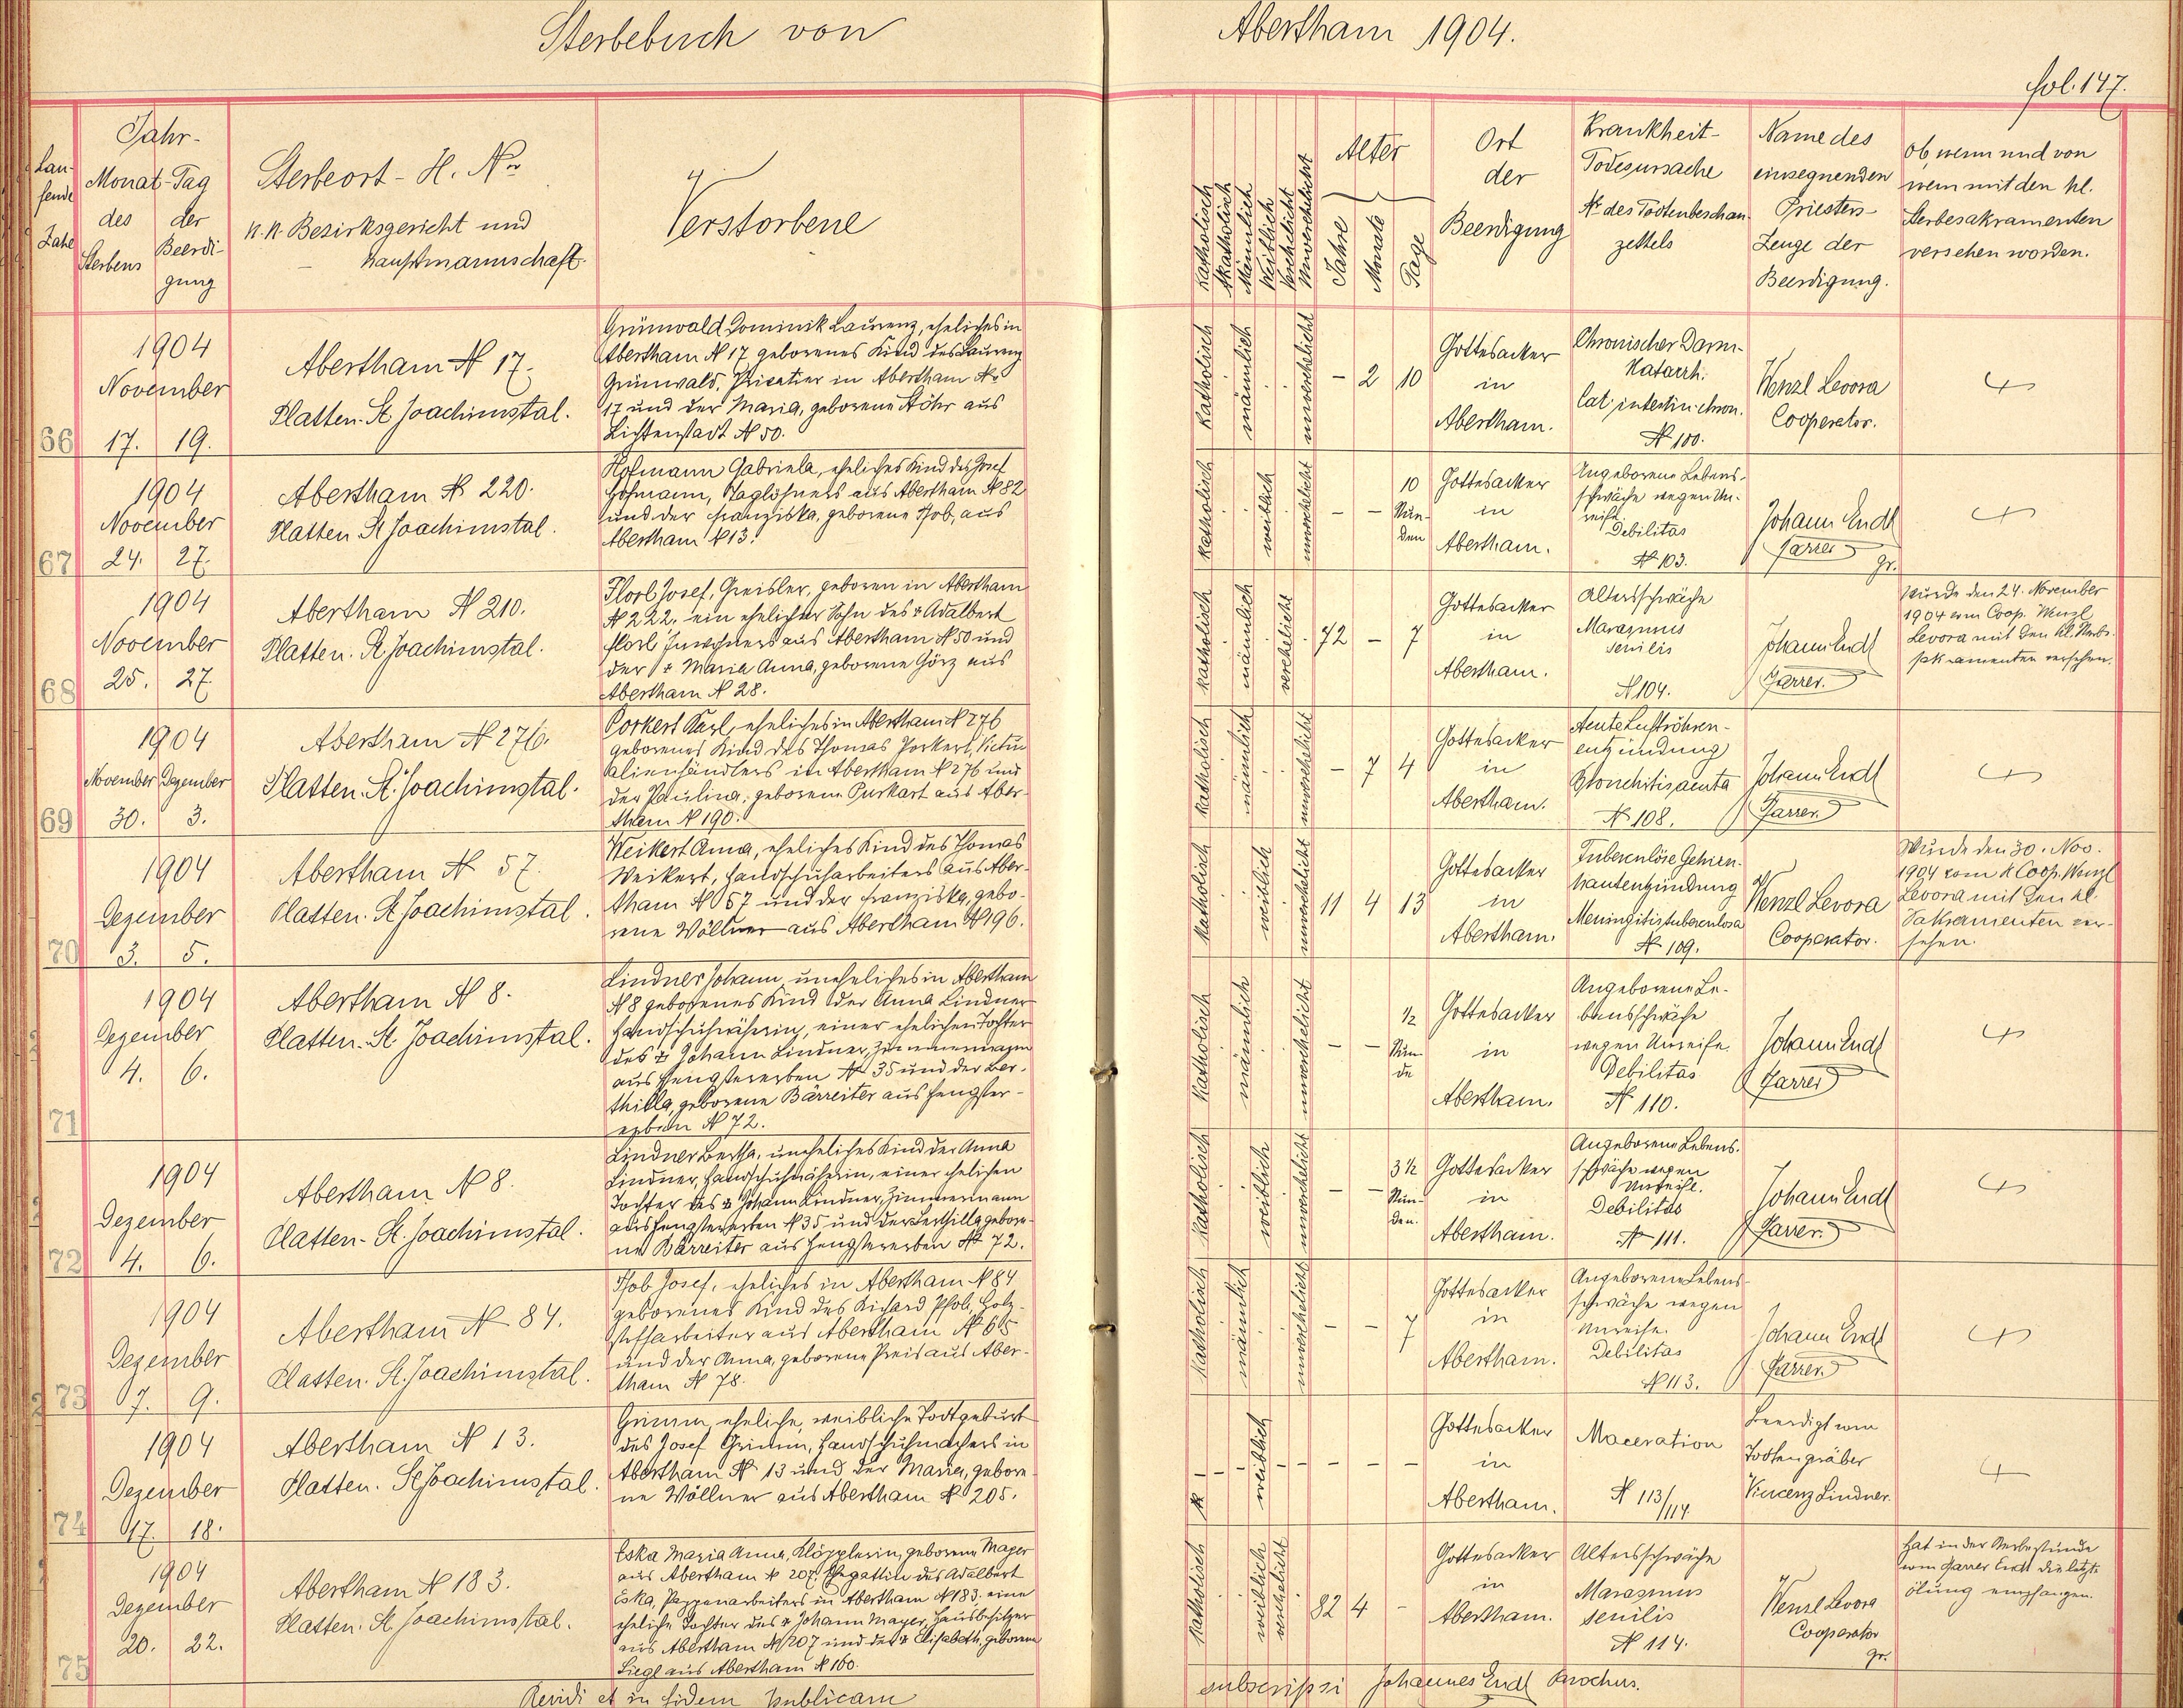 Sterbebuch von
Abertham 1904.
fol. 147.
Lau-
fende
Zahl
Jahr-
Monat-Tag
des der
Sterbens Beerdi-
gung
Sterbeort - H. Nr
k.k. Bezirksgericht und
- hauptmannschaft.
Verstorbene
Katholisch
Akatholisch
Männlich
Weiblich
Verehelicht
Unverehelicht
Alter
Jahre
Monate
Tage
Ort
der
Beerdigung
Krankheit-
Todesursache
Nr des Todtenbeschau-
zettels
Name des
einsegnenden
Priesters-
Zeuge der
Beerdigung.
ob, wenn und von
wem mit den hl.
Sterbesakramenten
versehen worden.
66
1904
November
17. 19.
Abertham N 17.
Platten. St. Joachimstal.
Grünwald Dominik Laurenz, eheliches in
Abertham N 17 geborenes Kind des Laurenz
Grünwald, Privatier in Abertham N
17 und der Maria, geborene Stöhr aus
Lichtenstadt N 50.
katholisch
männlich
unverehelicht
- 2 10
Gottesacker
in
Abertham.
Chronischer Darm-
Katarrh.
Cat. intestin. chron.
N 100.
Wenzl Levora
Cooperator.
67
1904
November
24. 27.
Abertham N 220.
Platten St Joachimstal.
Hofmann Gabriela, eheliches Kind des Josef
Hofmann, Taglöhners aus Abertham N 82
und der Franziska, geborene Pfob, aus
Abertham N 13.
katholisch
weiblich
unverehelicht
- - 10
Stun-
den
Gottesacker
in
Abertham.
Angeborene Lebens-
schwäche wegen Un-
reife.
Debilitas
N 103.
Johann Endl
Pfarrer
gr.
68
1904
November
25. 27.
Abertham N 210.
Platten. St. Joachimstal.
Josef, Greisler, geboren in Abertham
N 222. ein ehelicher Sohn des + Adalbert
Inwohners aus Abertham N 50 und
der + Maria Anna, geborene Görz aus
Abertham N 28.
katholisch
männlich
verehelicht
72 - 7
Gottesacker
in
Abertham.
Altersschwäche
Marasmus
senilis
N 104.
Johann Endl
Pfarrer.
Wurde den 24. November
1904 vom Coop. Wenzl
Levora mit den hl. Sterbe-
sakramenten versehen.
69
1904
November Dezember
30. 3.
Abertham N 276.
Platten. St. Joachimstal.
Porkert Karl, eheliches in Abertham N 276
geborenes Kind des Thomas Porkert, Viktu-
alienhändlers in Abertham N 276 und
der Paulina, geborene Purkart aus Aber-
tham N 190.
katholisch
männlich
unverehelicht
- 7 4
Gottesacker
in
Abertham.
Acute Luftröhren-
entzündung
Bronchitis acuta
N 108.
Johann Endl
Pfarrer.
70
1904
Dezember
3. 5.
Abertham N 57.
Platten. St. Joachimstal.
Weikert Anna, eheliches Kind des Thomas
Weikert, Handschuharbeiters aus Aber-
tham N 57 und der Franziska, gebo-
rene Wöllner aus Abertham N 196.
katholisch
weiblich
unverehelicht
11 4 13
Gottesacker
in
Abertham.
Tuberculöse Gehirn-
hautentzündung
Meningitis tuberculosa
N 109.
Wenzl Levora
Cooperator.
Wurde den 30. Nov.
1904 vom H Coop. Wenzl
Levora mit den hl.
Sakramenten ver-
sehen.
71
1904
Dezember
4. 6.
Abertham N 8.
Platten. St. Joachimstal.
Lindner Johann, uneheliches in Abertham
N 8 geborenes Kind der Anna Lindner
Handschuhnäherin, einer ehelichen Tochter
des + Johann Lindner, Zimmermann
aus Hengstererben N 35 und der Ber-
thilla, geborene Bärreiter aus Hengster-
erben N 72.
katholisch
männlich
unverehelicht
- - 1/2
Stun-
de
Gottesacker
in
Abertham.
Angeborene Le-
bensschwäche
wegen Unreife.
Debilitas
N 110.
Johann Endl
Pfarrer
72
1904
Dezember
4. 6.
Abertham N 8.
Platten - St. Joachimstal.
Lindner Bertha, uneheliches Kind der Anna
Lindner, Handschuhnäherin, einer ehelichen
Tochter des + Johann Lindner, Zimmermann
aus Hengstererben N 35 und der Berthilla gebore-
ne Bärreiter aus Hengstererben N 72.
katholisch
weiblich
unverehelicht
- - 3 1/2
Stun-
den.
Gottesacker
in
Abertham.
Angeborene Lebens-
schwäche wegen
Unreife.
Debilitas
N 111.
Johann Endl
Pfarrer.
73
1904
Dezember
7. 9.
Abertham N 84.
Platten. St. Joachimstal.
Pfob Josef, eheliches in Abertham N 84
geborenes Kind des Richard Pfob, Holz-
stoffarbeiter aus Abertham N 65
und der Anna, geborene Preis aus Aber-
tham N 78.
katholisch
männlich
unverehelicht
- - 7
Gottesacker
in
Abertham.
Angeborene Lebens-
schwäche wegen
Unreife.
Debilitas
N 113.
Johann Endl
Pfarrer.
74
1904
Dezember
17. 18.
Abertham N 13.
Platten. St Joachimstal.
Grimm, eheliche, weibliche Todtgeburt
des Josef Grimm, Handschuhmachers in
Abertham N 13 und der Maria, gebore-
ne Wöllner aus Abertham N 205.
K - - weiblich - - - - -
Gottesacker
in
Abertham.
Maceration
N 113/114.
Beerdigt vom
Todtengräber
Vincenz Lindner.
75
1904
Dezember
20. 22.
Abertham N 183.
Platten. St. Joachimstal.
Eska Maria Anna, Klöpplerin, geborene Mayer
aus Abertham N 207, Ehegattin des Adalbert
Eska, Pappenarbeiters in Abertham N 183. eine
eheliche Tochter des + Johann Mayer, Hausbesitzer
aus Abertham N 207 und der + Elisabeth, geborene
Siegl aus Abertham N 160.
katholisch
weiblich
verehelicht
82 4 -
Gottesacker
in
Abertham.
Altersschwäche
Marasmus
senilis
N 114.
Wenzl Levora
Cooperator
gr.
Hat in der Sterbestunde
vom Pfarrer Endl die letzte
Ölung empfangen.
Revidi et in fidem publicam
subscripsi Johannes Endl Parochus.